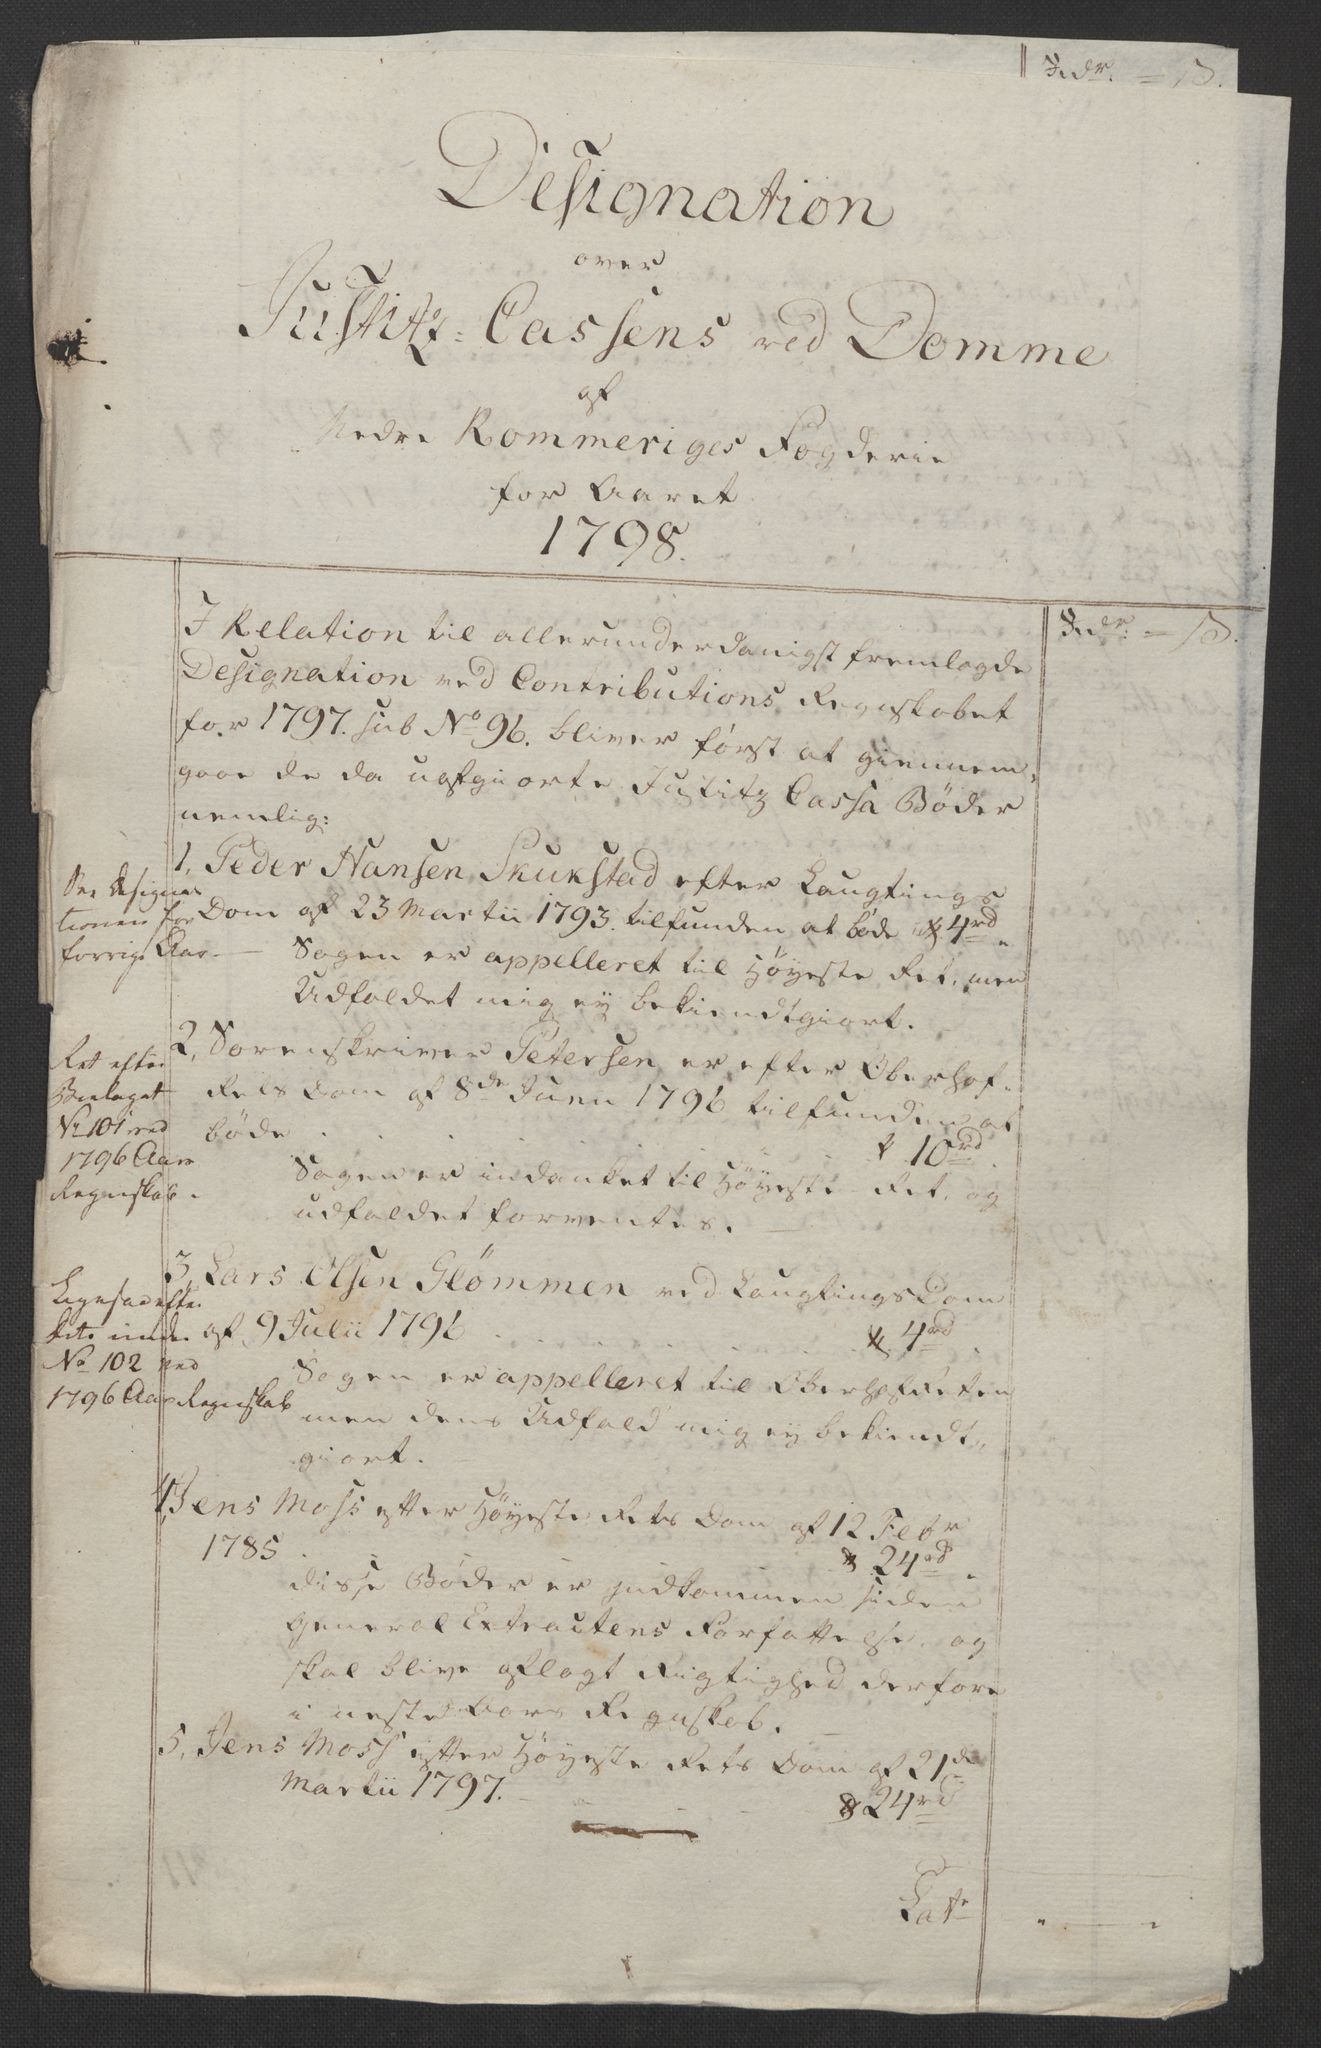 Designation
over
Justitz-Cassens ved Domme
af
Nedre Rommeriges Fogderie
for Aaret
1798.
I Relation til allerunderdanigst fremlagde
Designation ved Contributions Regnskabet
for 1797. sub No 96. bliver først at giennem-
gaae de da uafgiorte Justitz Cassa Bøder
nemlig:
1, Peder Hansen Skukstad efter Laugtings
Dom af 23 Martii 1793. tilfunden at bøde 4rd
Sagen er appelleret til Höyeste Ret, men
Udfaldet mig ey bekiendtgiort.
See Designa
tionen for
forrige Aar.
2, Sorenskriver Petersen er efter Oberhof-
Rets Dom af 8de Juni 1796 tilfunden at
bøde 10rd
Sagen er indanket til Höyeste Ret, og
udfaldet forventes.
Ret efter
Bielaget
No 101 ved
1796 Aars
Regnskab.
3, Lars Olsen Glömmen ved Laugtings Dom
af 9 Julii 1796 4rd
Sagen er appelleret til Oberhofretten
men dens Udfald mig ey bekiendt-
giort.
Ligesaa efter
dito under
No 102 ved
1796 Aars Regnskab
4, Jens Moss efter Höyeste Rets Dom af 12 Febr
1785 24rd
disse Bøder er indkommen siden
General Extractens Forfattelse, og
skal blive aflagt Rigtighed derfore
i neste Aars Regnskab.
5, Jens Moss efter Höyeste Rets Dom af 21de
Martii 1797. 24rd
Late